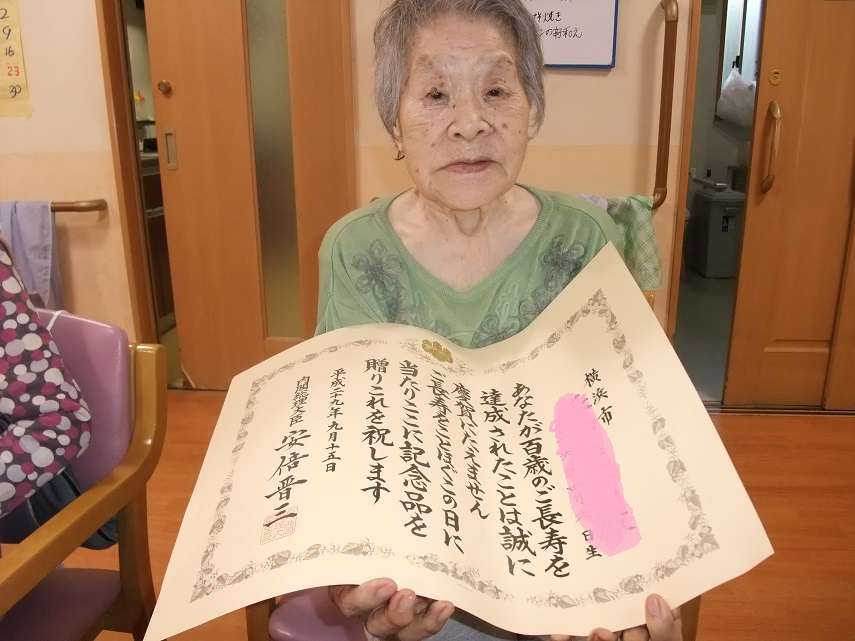 横浜市
日生
あなたが百歳のご長寿を
達成されたことは誠に
慶賀にたえません
ご長寿をことほぐこの日に
当たりここに記念品を
贈りこれを祝します
平成二十九年九月十五日
内閣総理大臣 安倍晋三
2
9
16
23
30
焼き